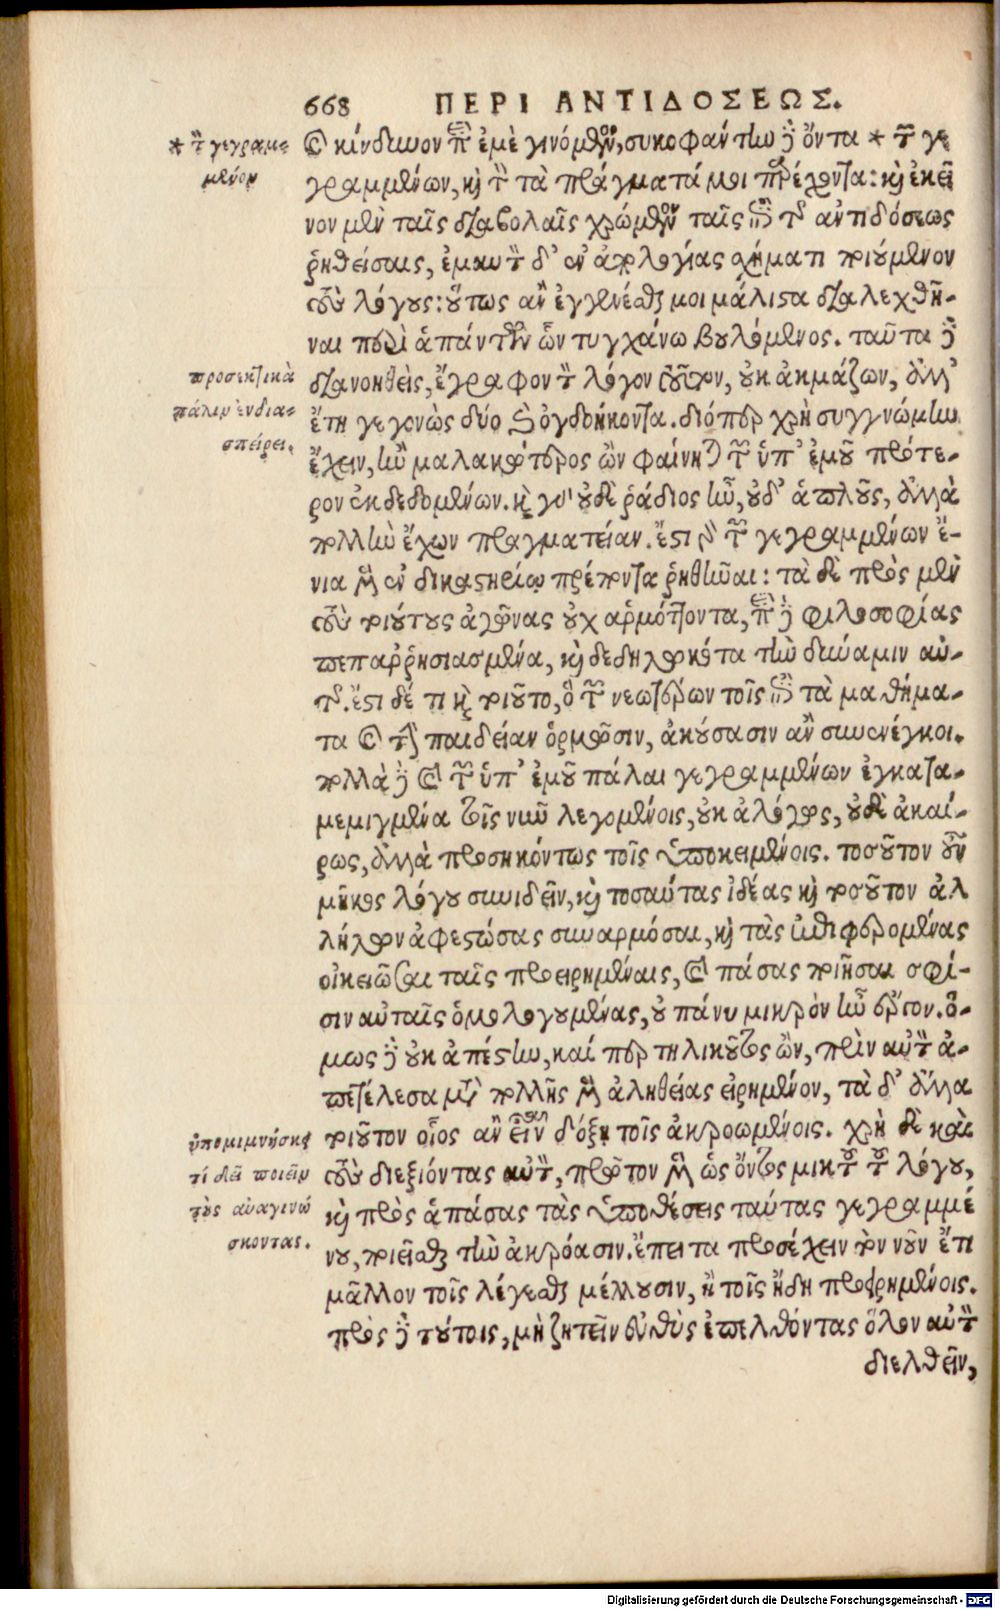 668 ΠΕΡΙ ΑΝΤΙΔΟΣΕΩΣ.
* τὸν γεγραμ-
μένον
καὶ κίνδυνον περὶ ἐμὲ γινόμενον, συκοφάντην δὲ ὄντα * τῶν γε
γραμμένων, καὶ τὸν τὰ πράγματά μοι παρέχοντα: καὶ ἐκεῖ
νον μὲν ταῖς διαβολαῖς χρώμενον ταῖς ἐπὶ τῆς ἀντιδόσεως
ῥηθείσαις, ἐμαυτὸν δ' ἐν ἀπολογίας σχήματι ποιούμενον
τοὺς λόγους: οὕτως ἂν ἐγγενέσθαι μοι μάλιστα διαλεχθῆ-
ναι περὶ ἁπάντων ὧν τυγχάνω βουλόμενος. ταῦτα δὲ
προσεκτικὰ
πάλιν ἐνδια-
σπείρει.
διανοηθεὶς, ἔγραφον τὸν λόγον τοῦτον, οὐκ ἀκμάζων, ἀλλ'
ἔτη γεγονὼς δύο καὶ ὀγδοήκοντα. διόπερ χρὴ συγγνώμην
ἔχειν, ἢν μαλακώτερος ὢν φαίνηται τῶν ὑπ' ἐμοῦ πρότε-
ρον ἐκδεδομένων. καὶ γὰρ οὐδὲ ῥάδιος ἦν, οὐδ' ἁπλοῦς, ἀλλὰ
πολλὴν ἔχων πραγματείαν. ἔστι γὰρ τῶν γεγραμμένων ἔ-
νια μὲν ἐν δικαστηρίῳ πρέποντα ῥηθῆναι: τὰ δὲ πρὸς μὲν
τοὺς τοιούτους ἀγῶνας οὐχ ἁρμόττοντα, περὶ δὲ φιλοσοφίας
πεπαρρησιασμένα, καὶ δεδηλωκότα τὴν δύναμιν αὐ-
τῆς. ἔστι δέ τι καὶ τοιοῦτο, ὃ τῶν νεωτέρων τοῖς ἐπὶ τὰ μαθήμα-
τα καὶ τὴν παιδείαν ὁρμῶσιν, ἀκούσασιν ἂν συνενέγκοι.
πολλὰ δὲ καὶ τῶν ὑπ' ἐμοῦ πάλαι γεγραμμένων ἐγκατα-
μεμιγμένα τοῖς νῦν λεγομένοις, οὐκ ἀλόγως, οὐδὲ ἀκαί-
ρως, ἀλλὰ προσηκόντως τοῖς ὑποκειμένοις. τοσοῦτον οὖν
μῆκος λόγου συνιδεῖν, καὶ τοσαύτας ἰδέας καὶ τοσοῦτον ἀλ
λήλων ἀφεστώσας συναρμόσαι, καὶ τὰς ἐπιφερομένας
οἰκειῶσαι ταῖς προειρημέναις, καὶ πάσας ποιῆσαι σφί-
σιν αὐταῖς ὁμολογουμένας, οὐ πάνυ μικρὸν ἦν ἔργον. ὅ-
μως δὲ οὐκ ἀπέστην, καί περ τηλικοῦτος ὢν, πρὶν αὐτὸν ἀ-
πετέλεσα μετὰ πολλῆς μὲν ἀληθείας εἰρημένον, τὰ δ' ἄλλα
ὑπομιμνήσκει
τί δεῖ ποιεῖν
τοὺς ἀναγινώ
σκοντας.
τοιοῦτον οἷος ἂν εἶναι δόξῃ τοῖς ἀκροωμένοις. χρὴ δὲ καὶ
τοὺς διεξιόντας αὐτὸν, πρῶτον μὲν ὡς ὄντος μικτοῦ τοῦ λόγου,
καὶ πρὸς ἁπάσας τὰς ὑποθέσεις ταύτας γεγραμμέ
νου, ποιεῖσθαι τὴν ἀκρόασιν. ἔπειτα προσέχειν τὸν νοῦν ἔτι
μᾶλλον τοῖς λέγεσθαι μέλλουσιν, ἢ τοῖς ἤδη προειρημένοις.
πρὸς δὲ τούτοις, μὴ ζητεῖν εὐθὺς ἐπελθόντας ὅλον αὐτὸν
διελθεῖν,
Digitalisierung gefördert durch die Deutsche Forschungsgemeinschaft - DFG